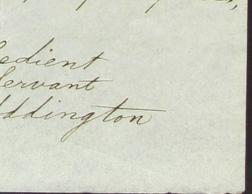 edient
Servant
Addington